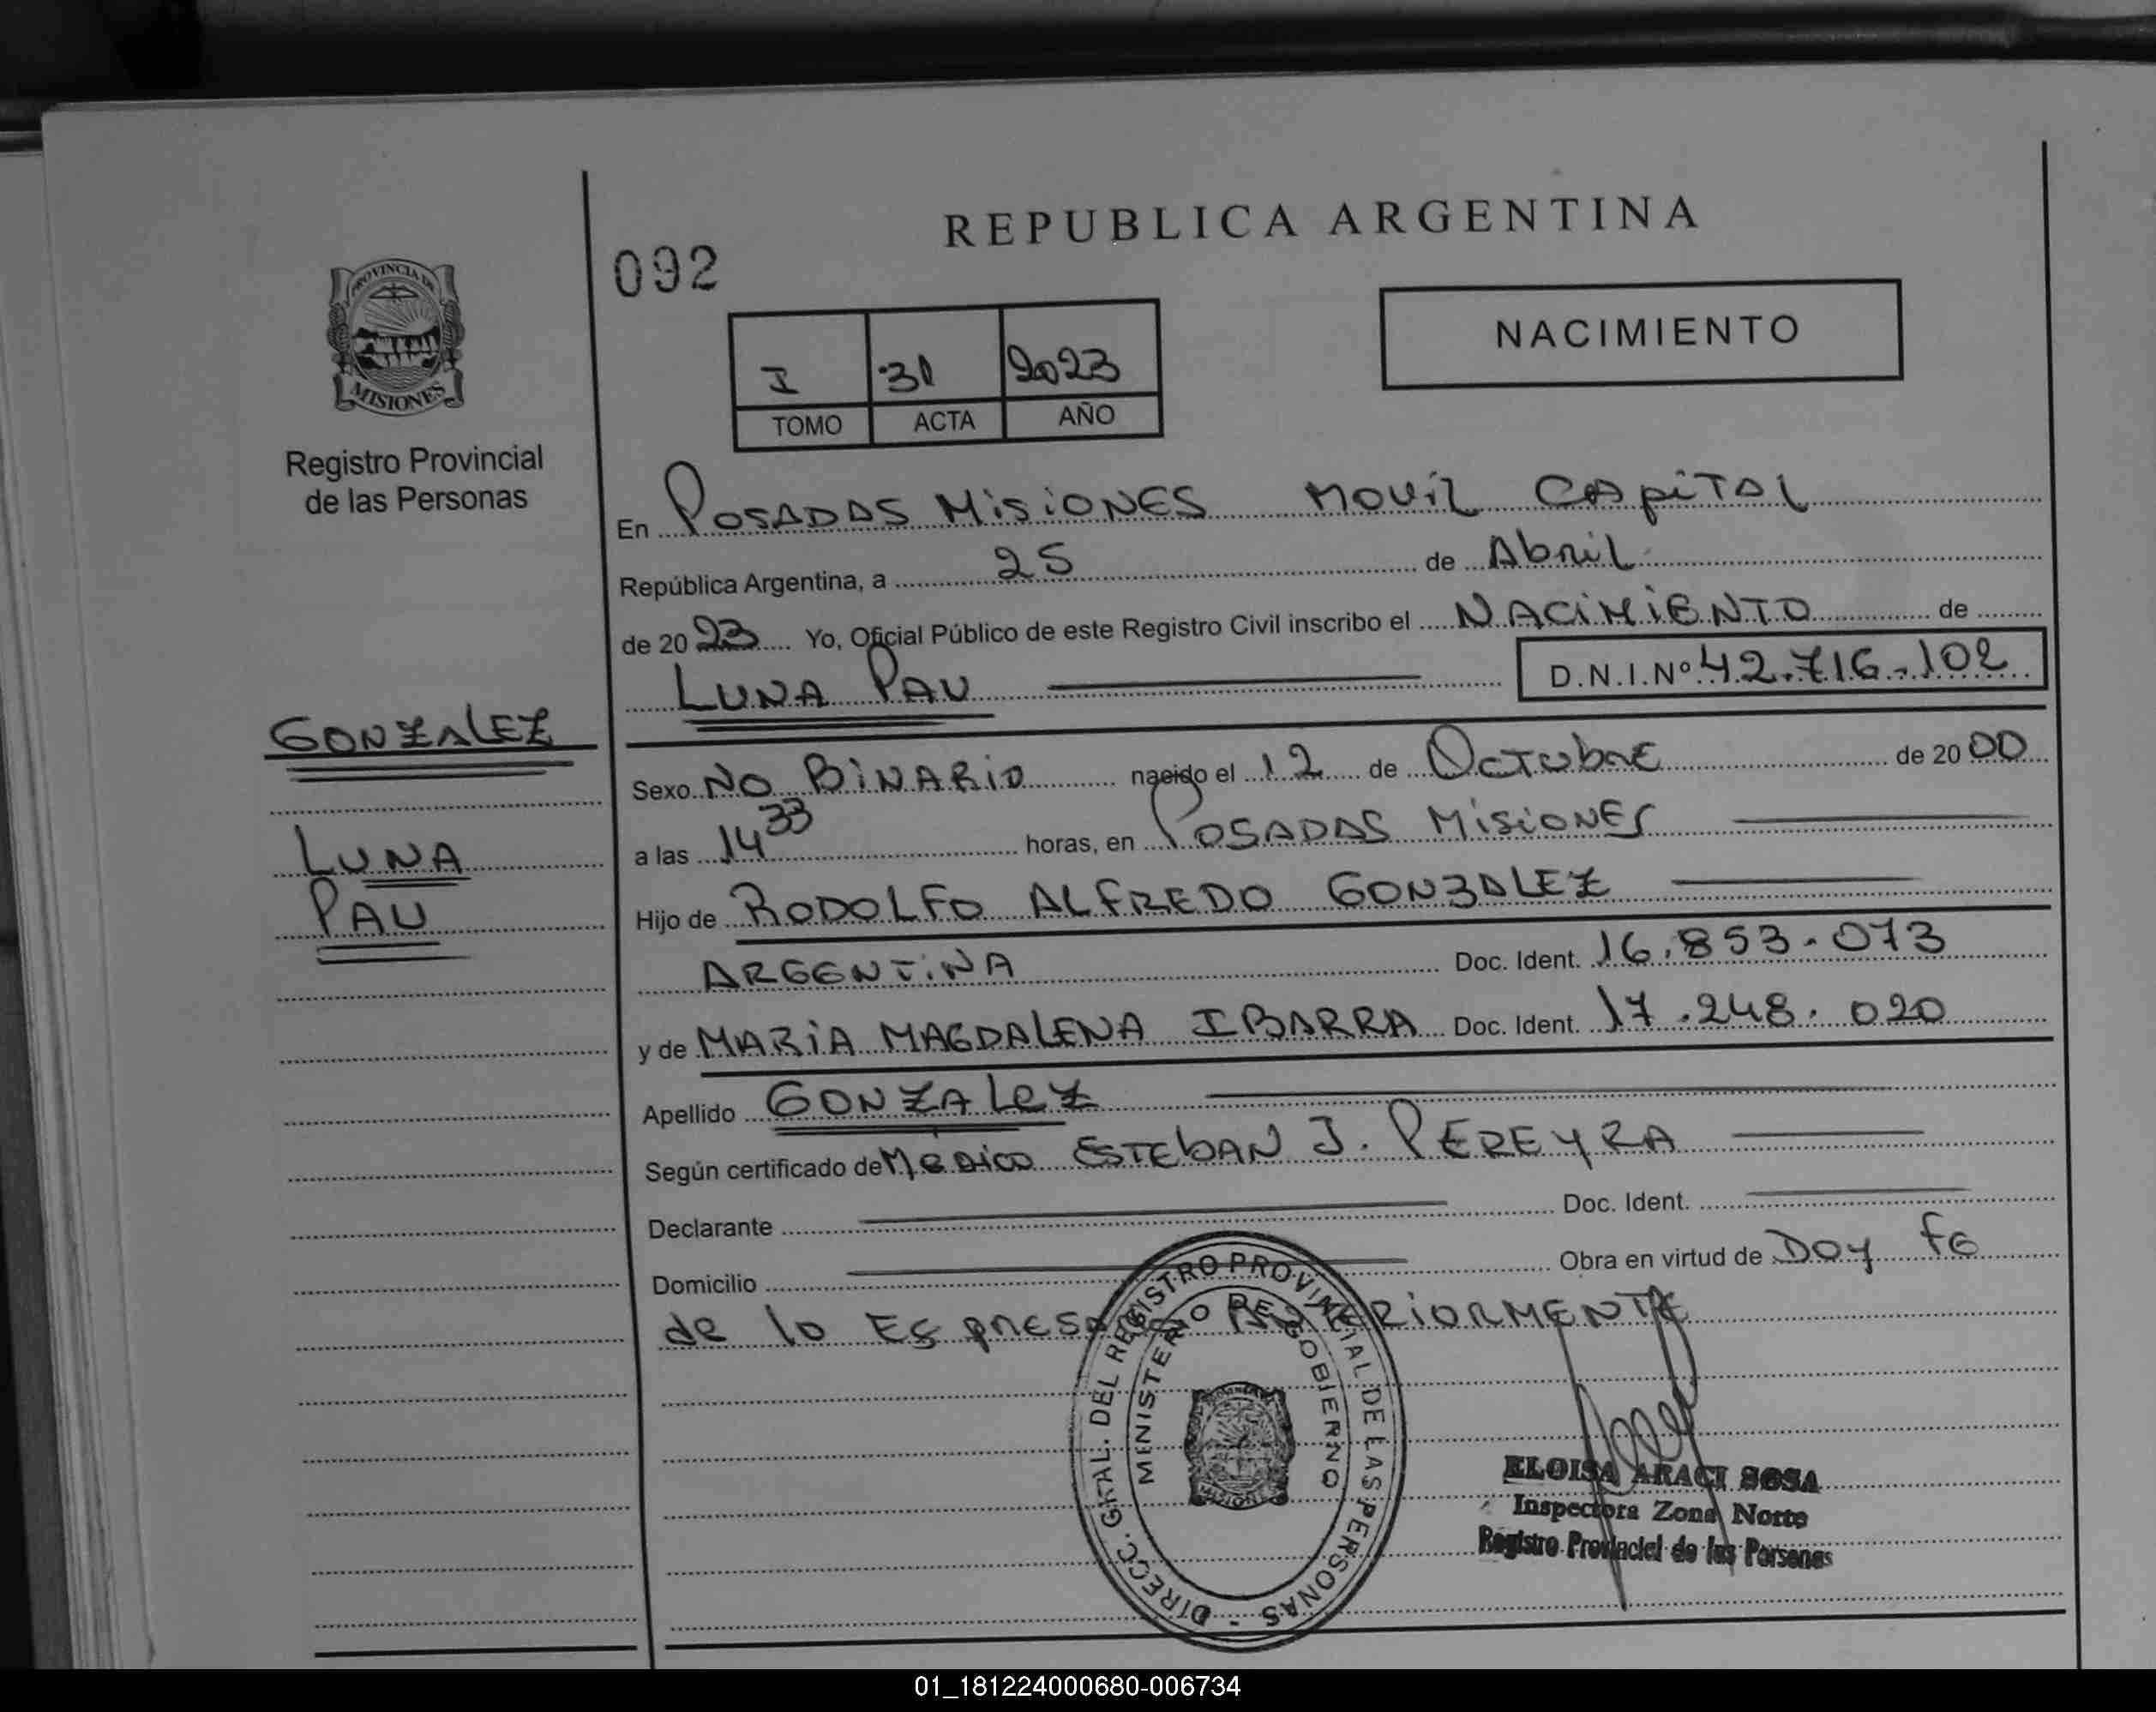 REPUBLICA ARGENTINA
092
PROVINCIA DE
MISIONES
Registro Provincial
de las Personas
I 31 2023
TOMO ACTA AÑO
NACIMIENTO
En POSADAS MiSiONES MOViL CApiTAL
República Argentina, a 25 de Abril
de 2023 Yo, Oficial Público de este Registro Civil inscribo el NACiMiENTO de
LUNA PAU D.N.I.Nº 42.716.102
GONZALEZ
LUNA
PAU
Sexo NO BiNARiO nacido el 12 de OCTubRE de 2000
a las 14 33 horas, en POSADAS MiSiONES
Hijo de RODOLFO ALFREDO GONZALEZ
ARGENTiNA Doc. Ident. 16.853.073
y de MARiA MAGDALENA IBARRA Doc. Ident. 17.248.020
Apellido GONZALEZ
Según certificado de MéDiCO ESTEbAN J. PEREYRA
Declarante Doc. Ident.
Domicilio Obra en virtud de DOy FE
de lo ESpRESADO ANTERiORMENTE
DIRECC. GRAL. DEL REGISTRO PROVINCIAL DE LAS PERSONAS -
MINISTERIO DE GOBIERNO
ELOISA ARACI SOSA
Inspectora Zona Norte
Registro Provincial de las Personas
01_181224000680-006734